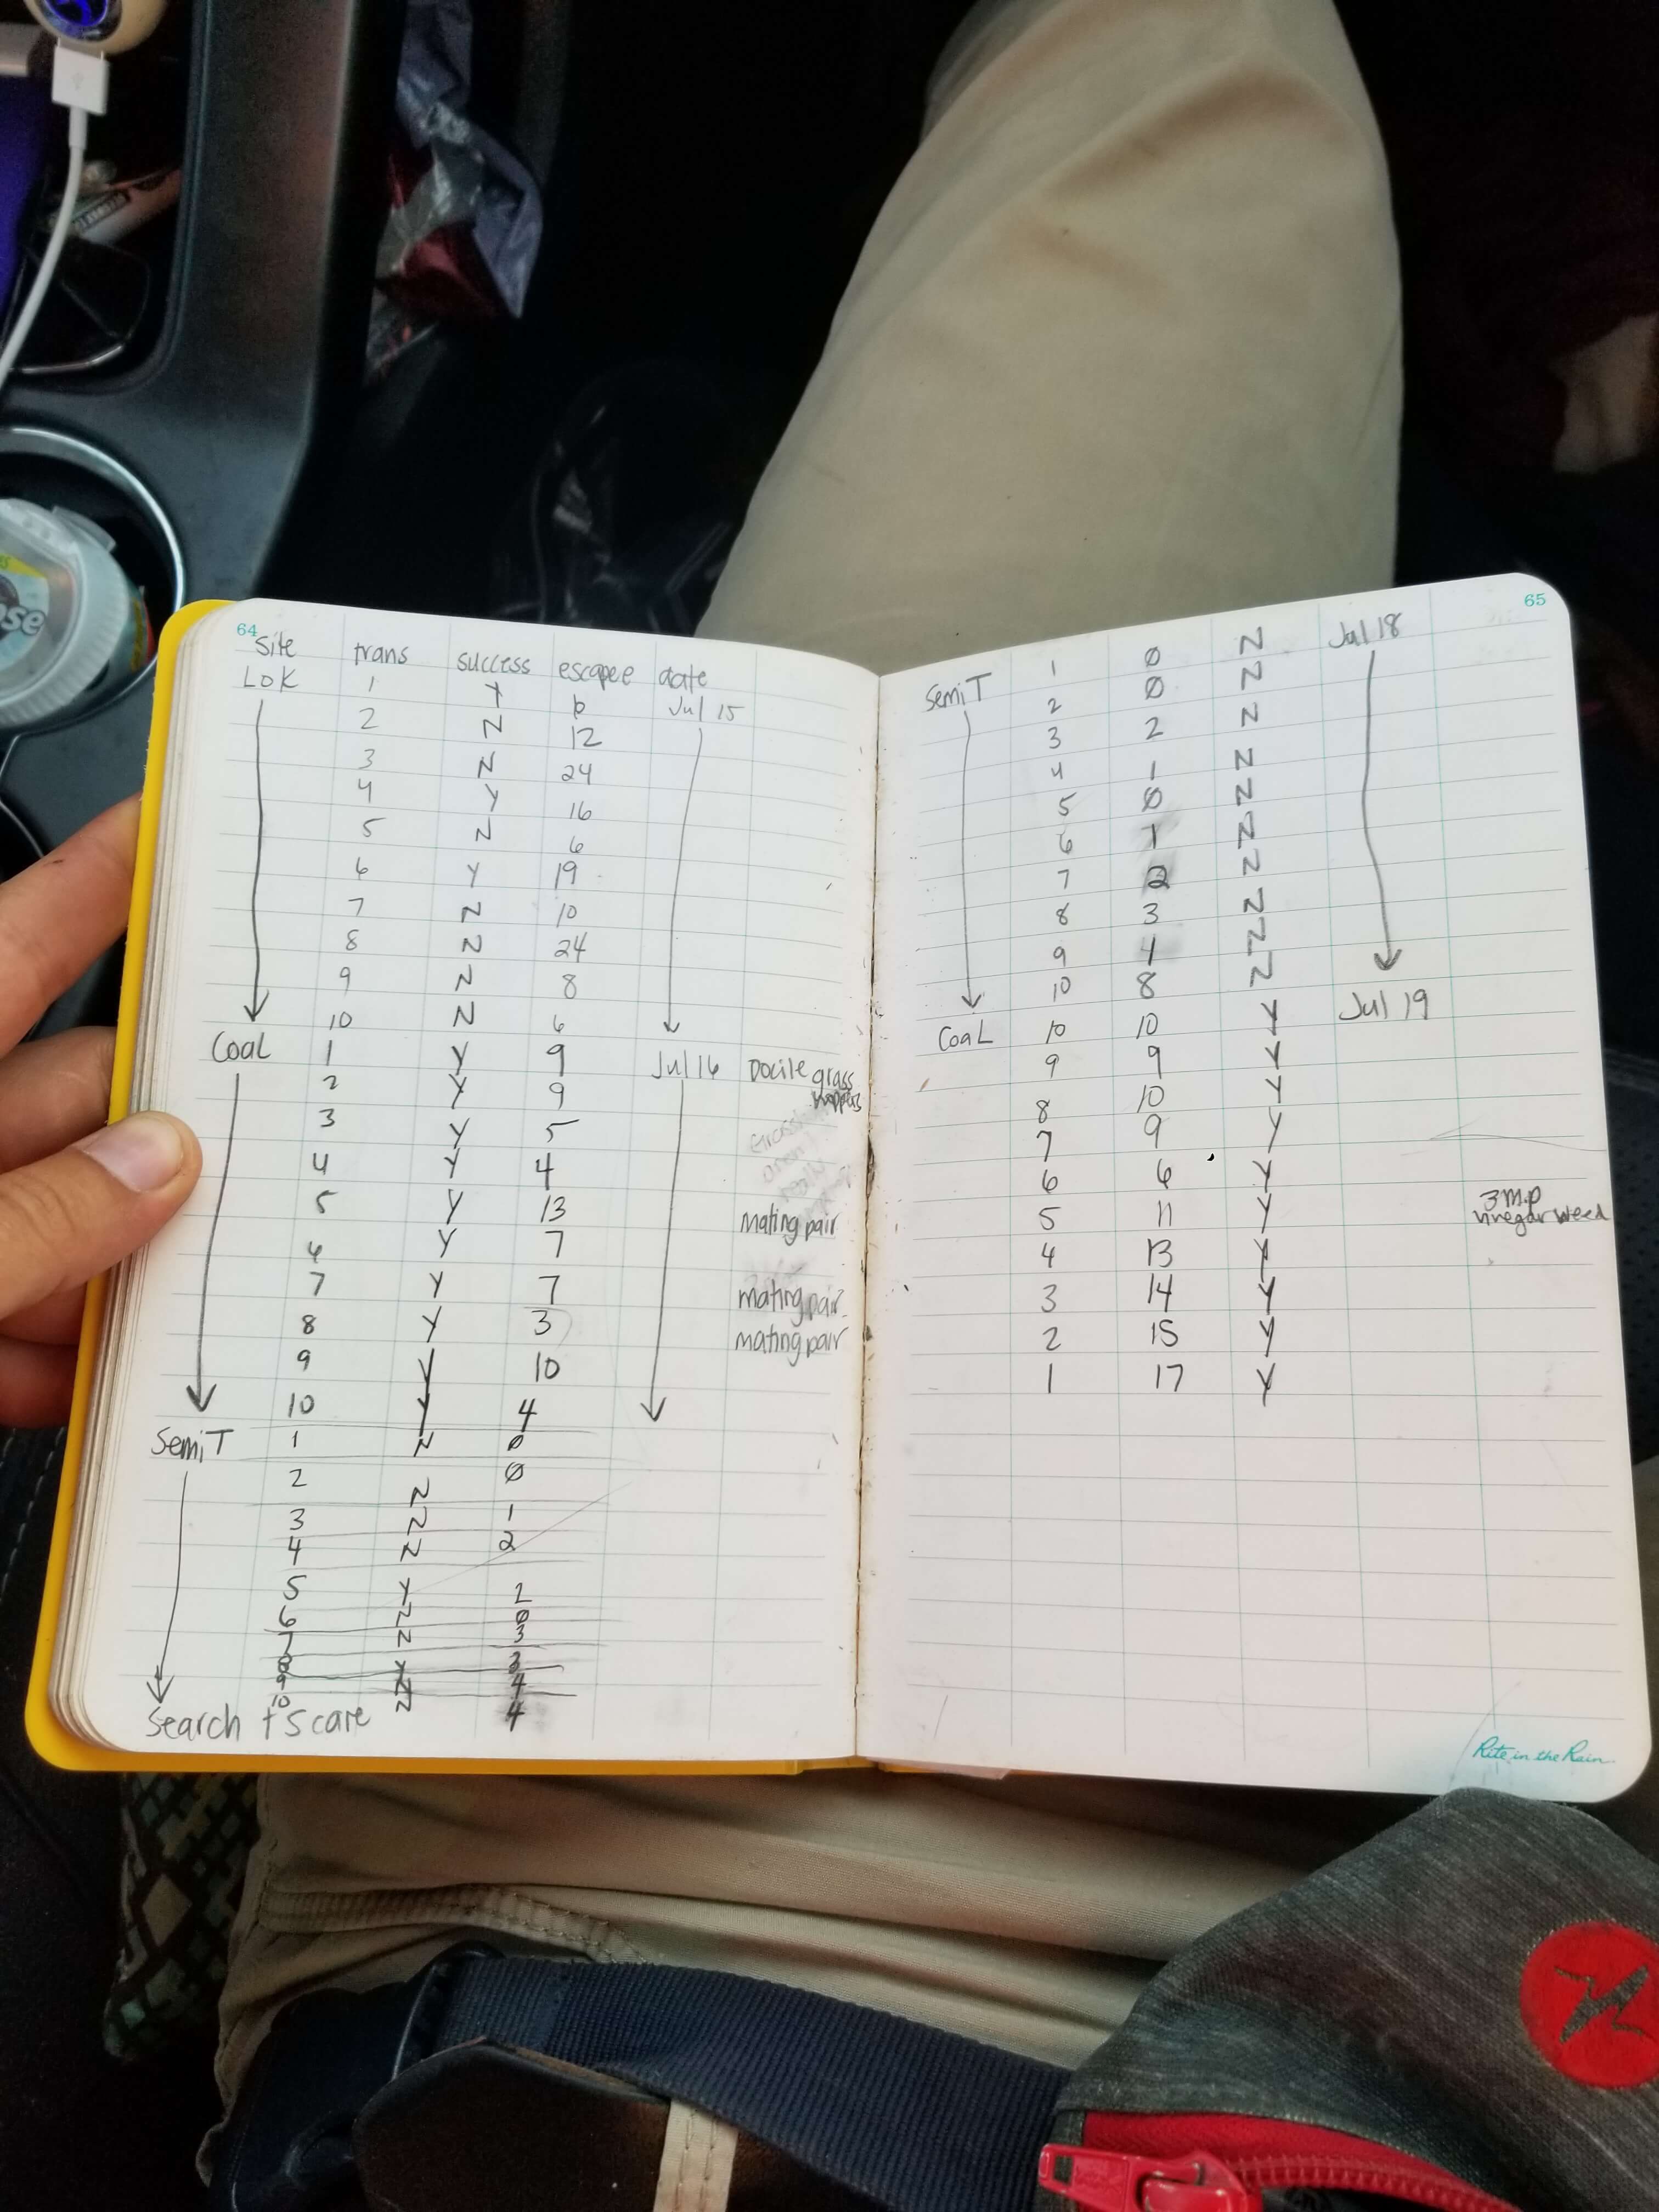 64
Site trans success escapee date
LoK 1 Y Jul 15
2 N 12
3 N 24
4 Y 16
5 N 6
6 Y 19
7 N 10
8 N 24
9 N 8
10 N 6
Coal 1 Y 9 Jul 16 Docile grass
hoppers
2 Y 9
3 Y 5
4 Y 4
5 Y 13 mating pair
6 Y 7
7 Y 7 mating pair
8 Y 3 mating pair
9 Y 10
10 Y 4
SemiT 1 N Ø
2 N Ø
3 N 1
4 N 2
5 Y
6 N Ø
7 N 3
8 Y 3
9 N 4
10 N 4
Search + Scare
65
SemiT 1 Ø N Jul 18
2 Ø N
3 2 N
4 1 N
5 Ø N
6 1 N
7 2 N
8 3 N
9 4 N
10 8 N
Coal 10 10 Y Jul 19
9 9 Y
8 10 Y
7 9 Y
6 6 Y
5 11 Y 3 m.p
vinegar weed
4 13 Y
3 14 Y
2 15 Y
1 17 Y
Rite in the Rain